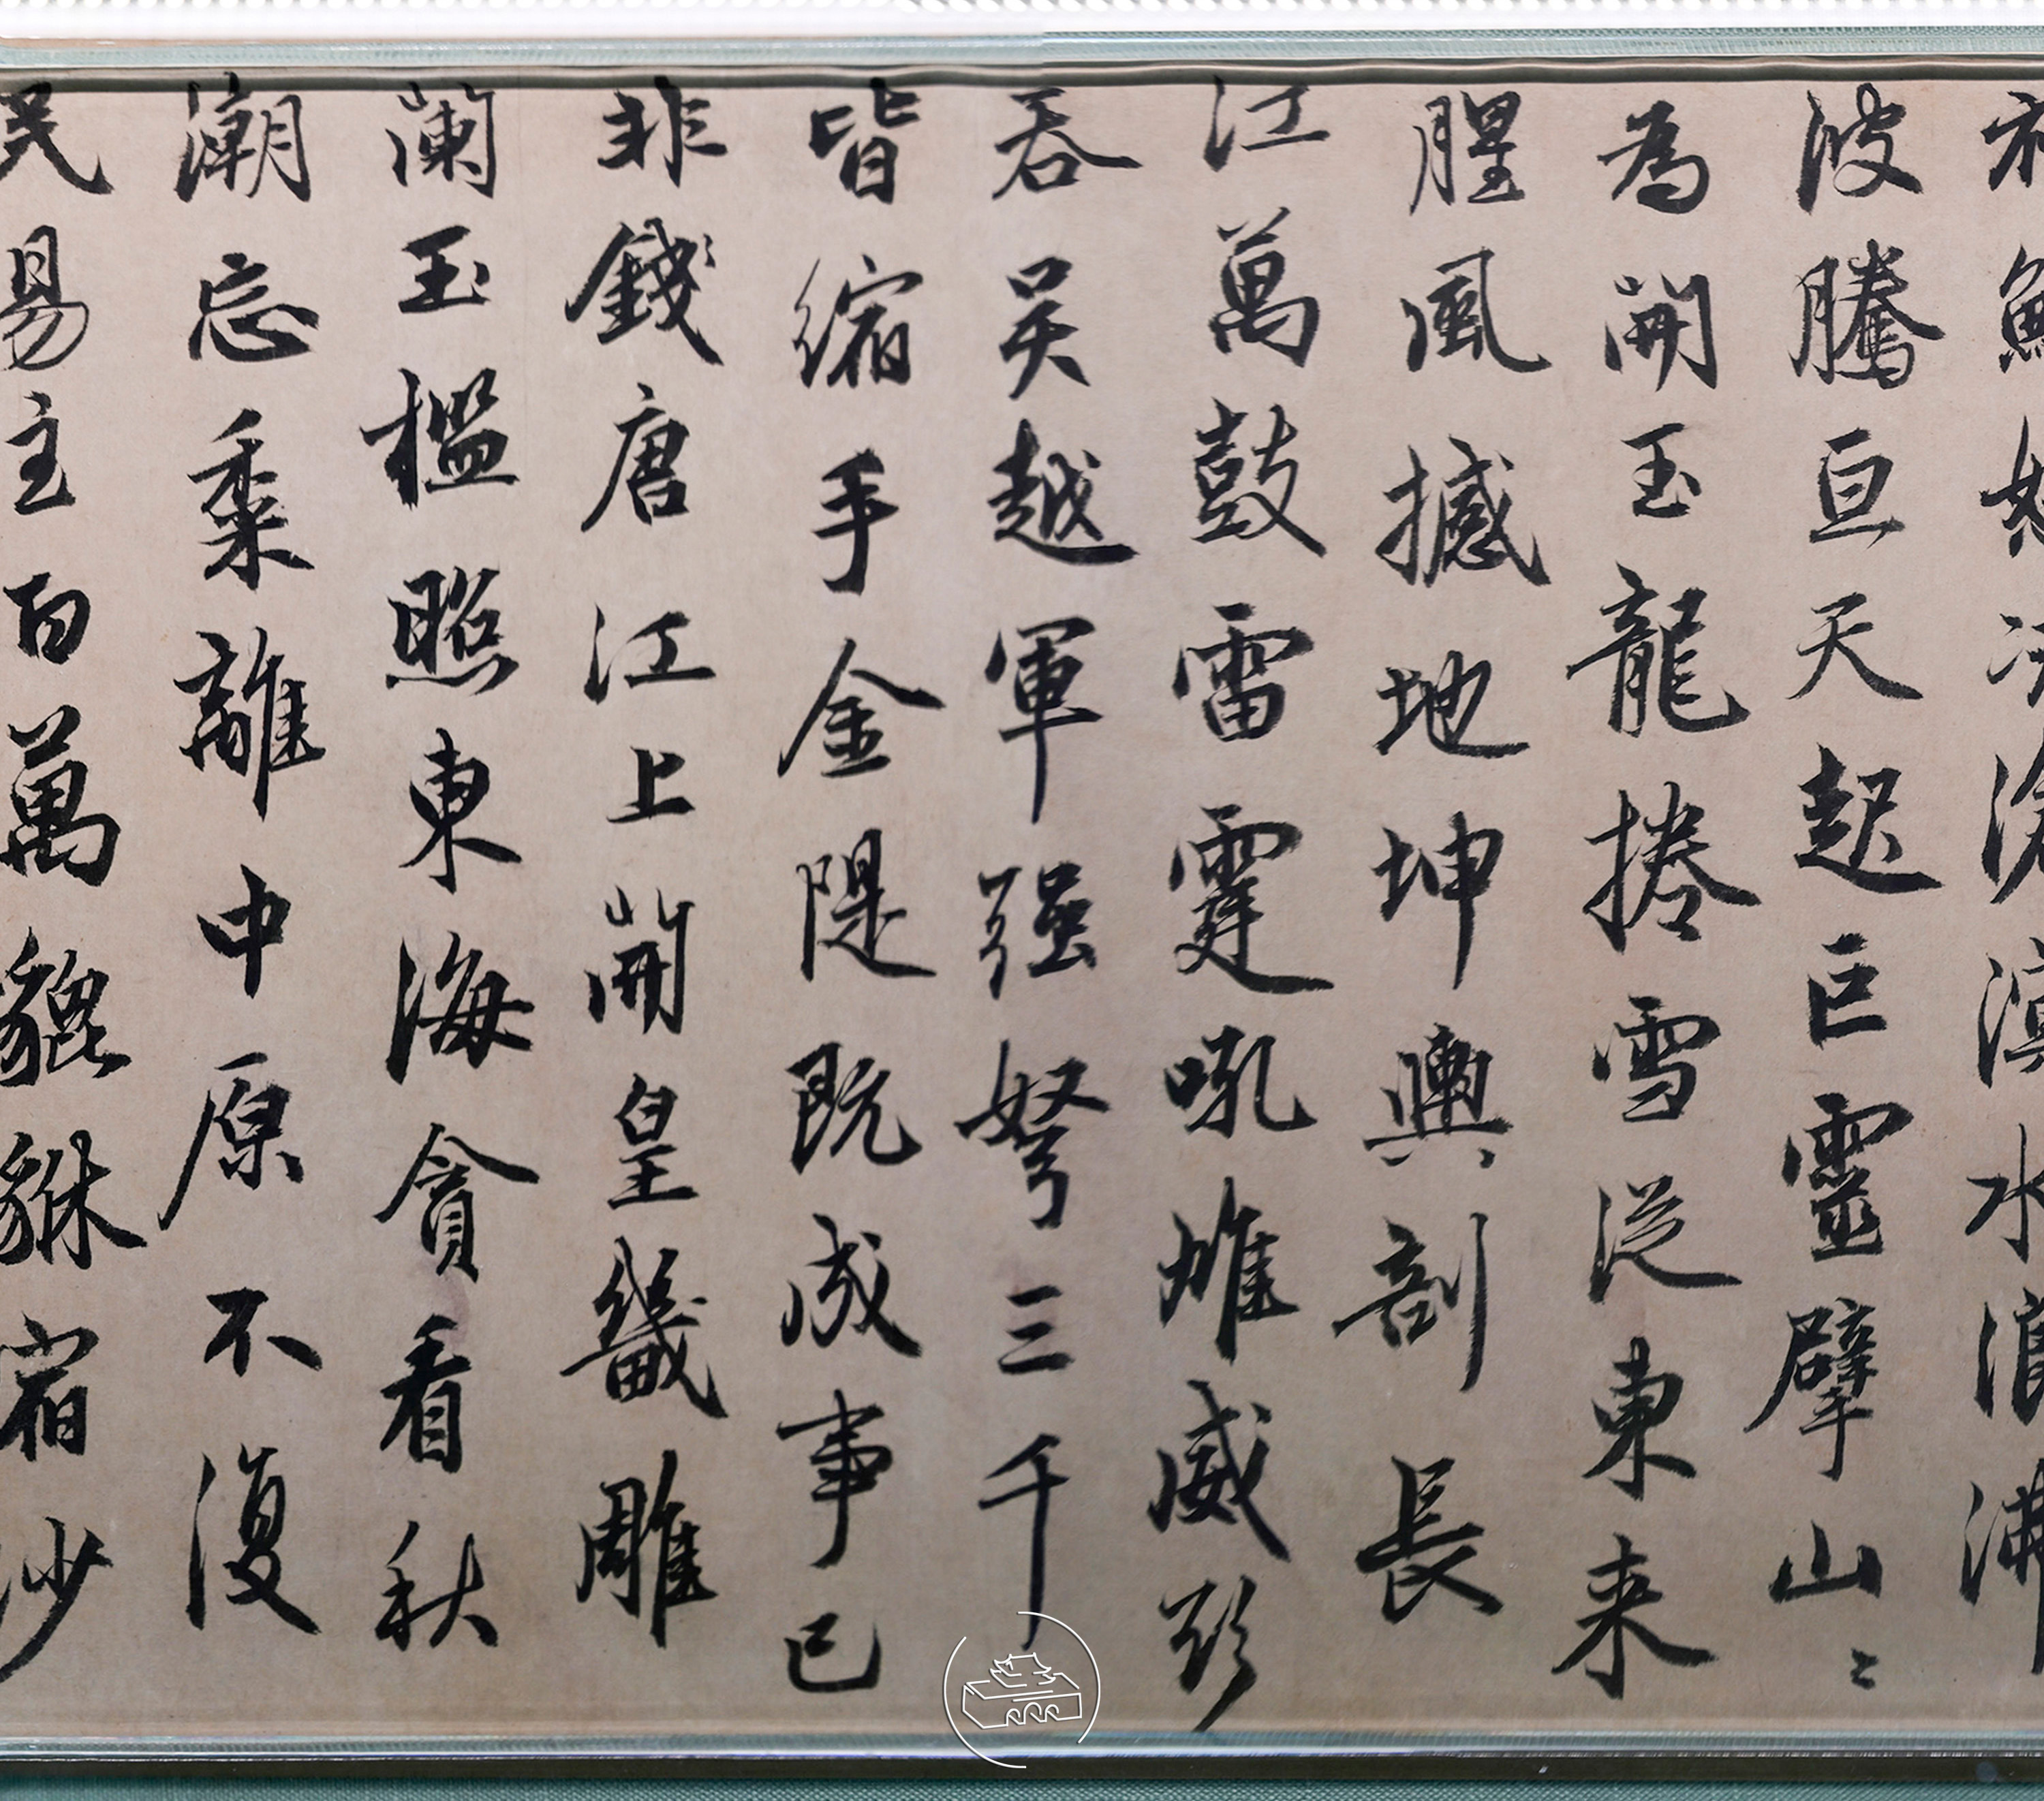 水
波騰亘天起巨靈擘山〻
為開玉龍捲雪從東來
腥風撼地坤輿剖長
江萬鼓雷霆吼雄威欲
吞吳越軍强弩三千
皆縮手金隄既成事已
非錢唐江上開皇畿雕
闌玉檻照東海貪看秋
潮忘黍離中原不復
易主百萬貔貅宿沙